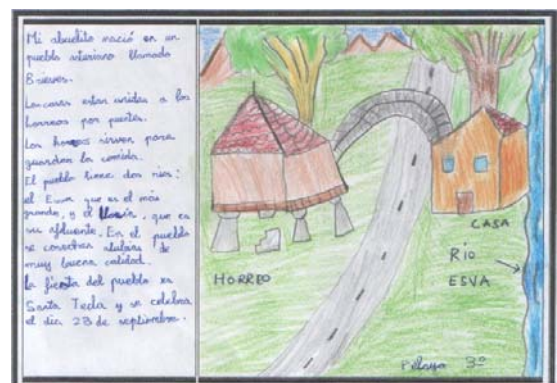 Mi abuelito nació en un
pueblo asturiano llamado
Brieves.
Las casas estan unidas a los
horreos por puentes.
Los horreos sirven para
guardar la comida.
El pueblo tiene dos rios:
el Esva que es el más
grande, y el Llorín, que es
su afluente. En el pueblo
se cosechan alubias de
muy buena calidad.
La fiesta del pueblo es
Santa Tecla y se celebra
el dia 23 de septiembre.
HORREO
CASA
RIO
ESVA
Pelayo 3º